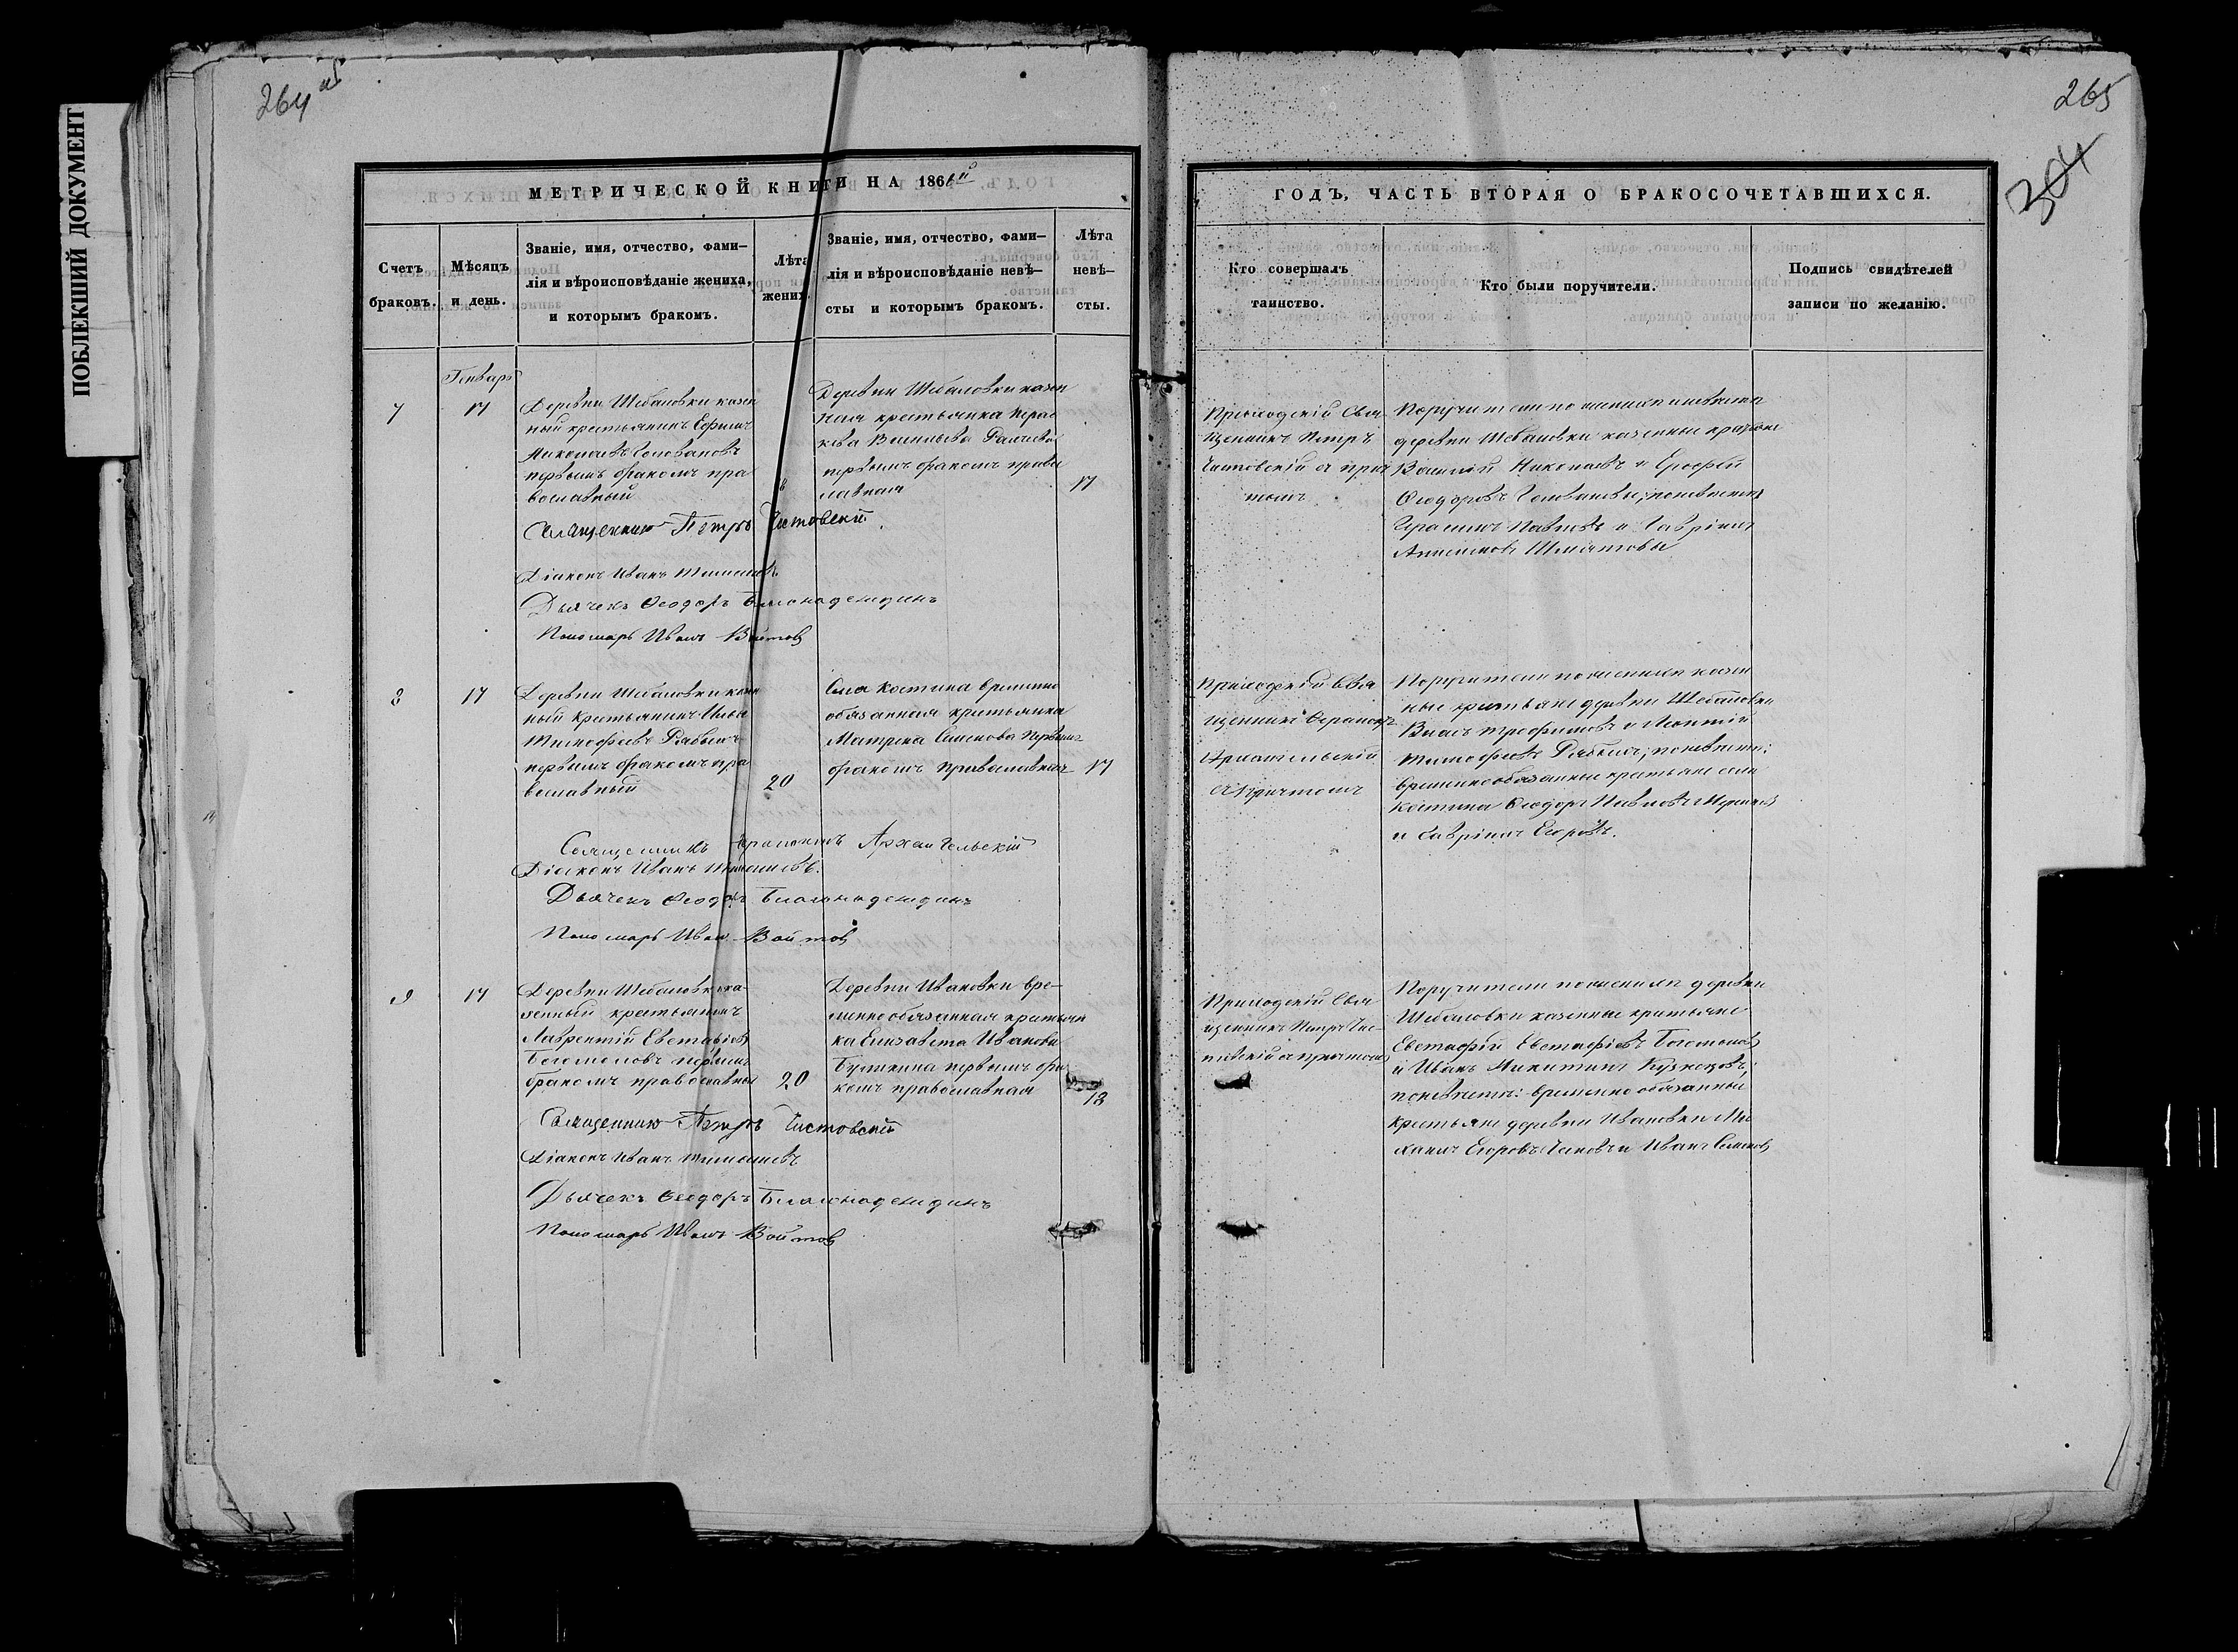 ПОБЛЕКШИЙ ДОКУМЕНТ
264 об
МЕТРИЧЕСКОЙ КНИГИ НА 1866й
Счетъ браковъ.
Мѣсяцъ и день.
Званіе, имя, отчество, фами-
лія и вѣроисповѣданіе жениха,
и которымъ бракомъ.
Лѣта жениха.
Званіе, имя, отчество, фами-
лія и вѣроисповѣданіе невѣ-
сты и которымъ бракомъ.
Лѣта невѣ-
сты.
Генварь
7
17
Деревни Шебаловки казен
ный крестьянинъ Ефимъ
Николаевъ Головановъ
первымъ бракомъ пра
вославный
Деревни Шебаловки казен
ная крестьянка Парас
кева Васильева
первымъ бракомъ правос
лавная
17
Священникъ Петръ Чистовскій
Діаконъ Иванъ
Дьячекъ Ѳеодоръ Благонадеждинъ
Пономарь Иванъ Войтовъ
8
17
Деревни Шебаловки казен
ный крестьянинъ Илья
Тимофеевъ Рябыхъ
первымъ бракомъ пра
вославный
20
Села Костина временно
обязанная крестьянка
Матрена Симонова первымъ
бракомъ православная
17
Священникъ Ѳерапонтъ Архангельскій
Діаконъ Иванъ
Дьячекъ Ѳеодоръ Благонадеждинъ
Пономарь Иванъ Войтовъ
9
17
Деревни Шебаловки ка-
зенный крестьянинъ
Лаврентій Евстафіевъ
Богомоловъ первымъ
бракомъ православный
20
Деревни Ивановки вре-
меннообязанная крестьян
ка Елизавета Иванова
первымъ бра
комъ православная
18
Священникъ Петръ Чистовскій
Діаконъ Иванъ
Дьячекъ Ѳеодоръ Благонадеждинъ
Пономарь Иванъ Войтовъ
265
304
ГОДЪ, ЧАСТЬ ВТОРАЯ О БРАКОСОЧЕТАВШИХСЯ.
Кто совершалъ
таинство.
Кто были поручители.
Подпись свидѣтелей
записи по желанію.
Приходскій Свя
щенникъ Петръ
Чистовскій съ прич
томъ
Поручители по женихѣ и невѣстѣ
деревни Шебаловки казенные крестьяне
Василій Николаевъ и Ерофей
Ѳеодоровъ Головановы; по невѣстѣ
Герасимъ Павловъ и Гавріилъ
Анисимовъ
Приходскій Свя
щенникъ Ѳерапонтъ
Архангельскій
съ причтомъ
Поручители по женихѣ казен
ные крестьяне деревни Шебаловки
Власъ Трофимовъ и Леонтій
Тимофеевъ Рябыхъ; по невѣстѣ:
временнообязанные крестьяне села
Костина Ѳеодоръ Павловъ
и Гавріилъ Егоровъ.
Приходскій Свя
щенникъ Петръ Чис-
товскій съ причтомъ
Поручители по женихѣ деревни
Шебаловки казенные крестьяне
Евстафій Евстафіевъ Богомоловъ
и Иванъ Никитинъ Кузнецовъ;
по невѣстѣ: временно обязанные
крестьяне деревни Ивановки Ми
хаилъ Егоровъ и Иванъ Семеновъ